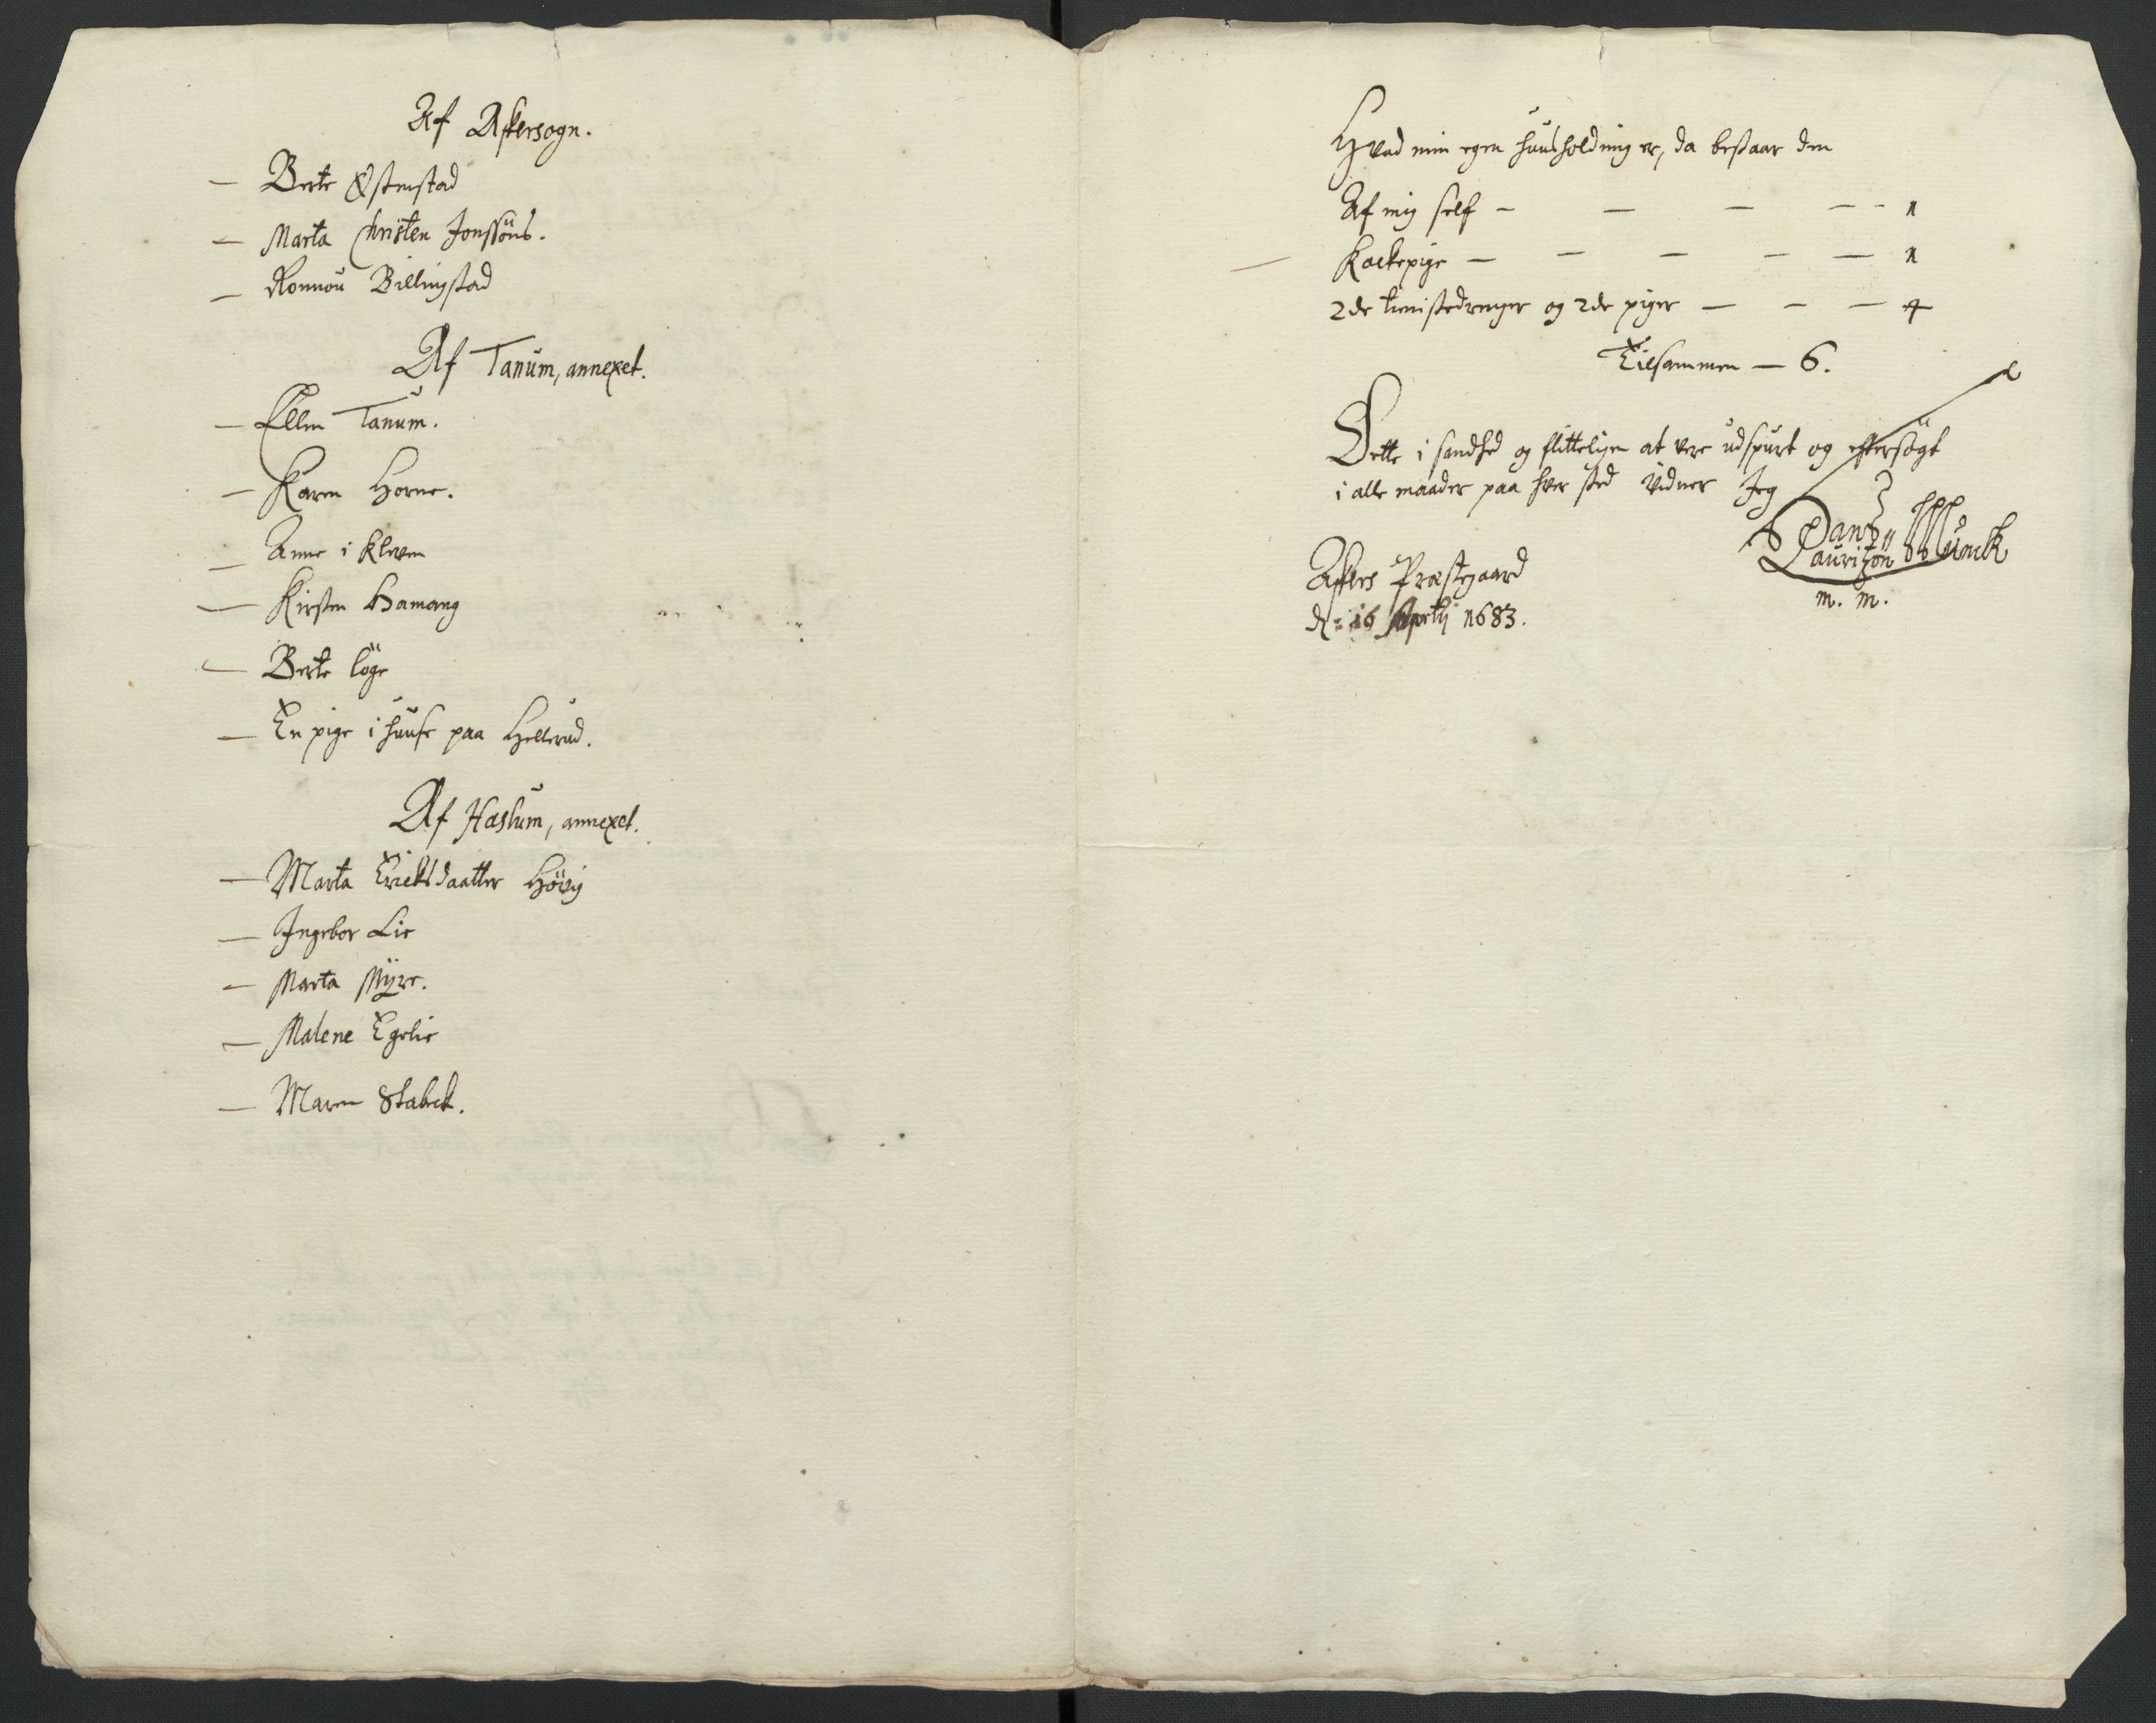 Af Askersogn.
— Berte Østenstad
— Marta Christen Jonssöns.
— Ronnou Billingstad
Af Tanum, annexet.
— Ellen Tanum.
— Karen Horne.
— Anne i Kleven
— Kirsten Hamang
— Berte löge
— En pige i huuse paa Hellerud.
Af Haslum, annexet.
— Marta Ericksdaatter Hövig
— Ingebor Lie
— Marta Myre.
— Malene Egelie
— Maren Stabek.
Hvad min egen huusholding er, da bestaar den
Af mig self — — — — 1
— Kockepige — — — — — 1
2de tienistedrenger og 2de piger — — — 4
Tilsammen — 6.
Dette i sandhed og flitteligen at vere udspurt og eftersögt
i alle maader paa hver sted vidner Jeg
Lauritzön Munck
m. m.
Askers Præstegaard
d: 16 Aprilij 1683.